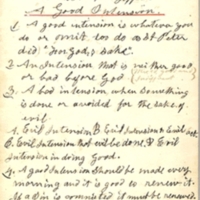 A Good Intension.
1. A good intension is whatever you
do or omit to do as St Peter
did. "For God's sake".
2. An Intension that is neither good
or bad before God
3. A bad intension when something
is done or avoided for the sake of
evil.
A. Evil Intension B. Evil Intension to Evil act.
B. Evil Intension that will be done, & Evil
Intension in doing Good.
4. A good Intension should be made every
morning and it is good to renew it.
If a Sin is committed it must be renewed